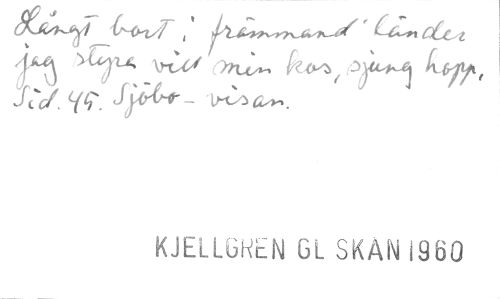 Långt bort i främmand' länder
jag styra vill min kos, sjung hopp,
Sid. 45. Sjöbo-visan.
KJELLGREN GL SKÅN 1960